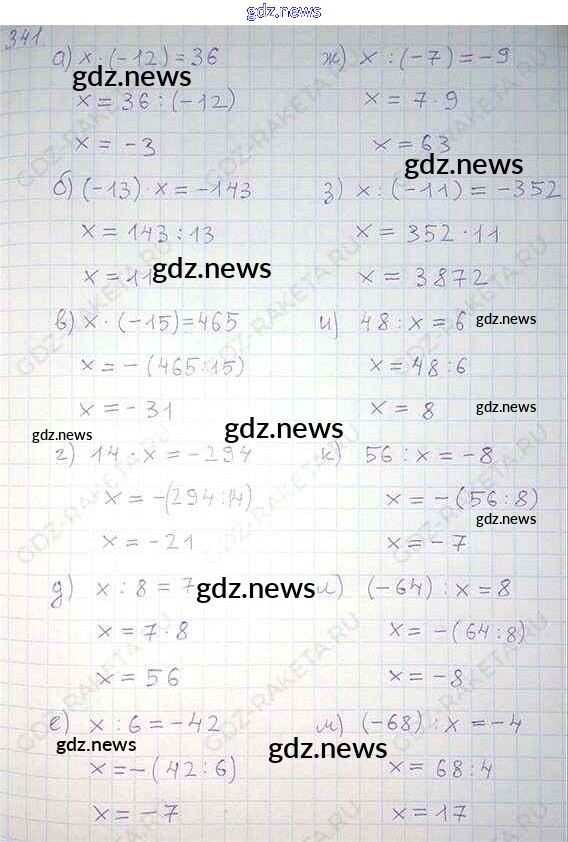 gdz.news
341.
а) x · (-12) = 36
gdz.news
x = 36 : (-12)
x = -3
б) (-13) · x = -143
x = 143 : 13
x = 11
gdz.news
в) x · (-15) = 465
x = -(465:15)
x = -31
gdz.news
gdz.news
г) 14 · x = -294
x = -(294:14)
x = -21
д) x : 8 = 7
gdz.news
x = 7 · 8
x = 56
е) x : 6 = -42
gdz.news
x = -(42:6)
x = -7
ж) x : (-7) = -9
x = 7 · 9
x = 63
gdz.news
з) x : (-11) = -352
x = 352 · 11
x = 3872
и) 48 : x = 6
gdz.news
x = 48 : 6
x = 8
gdz.news
к) 56 : x = -8
x = -(56:8)
gdz.news
x = -7
л) (-64) : x = 8
x = -(64:8)
x = -8
м) (-68) : x = -4
gdz.news
x = 68 : 4
x = 17
GDZ-RAKETA.RU
GDZ-RAKETA.RU
GDZ-RAKETA.RU
GDZ-RAKETA.RU
GDZ-RAKETA.RU
GDZ-RAKETA.RU
GDZ-RAKETA.RU
GDZ-RAKETA.RU